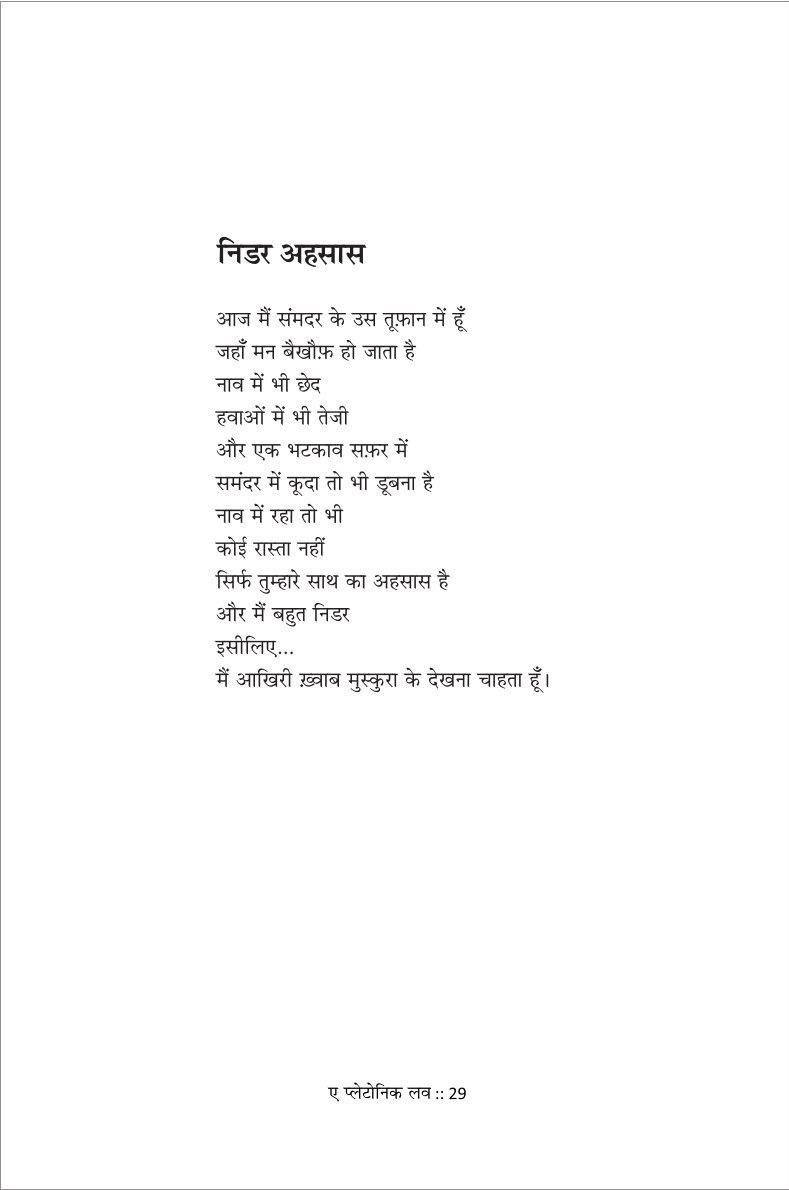 निडर अहसास
आज मैं संमदर के उस तूफ़ान में हूँ
जहाँ मन बैखौफ़ हो जाता है
नाव में भी छेद
हवाओं में भी तेजी
और एक भटकाव सफ़र में
समंदर में कूदा तो भी डूबना है
नाव में रहा तो भी
कोई रास्ता नहीं
सिर्फ तुम्हारे साथ का अहसास है
और मैं बहुत निडर
इसीलिए...
मैं आखिरी ख़्वाब मुस्कुरा के देखना चाहता हूँ।
ए प्लेटोनिक लव :: 29